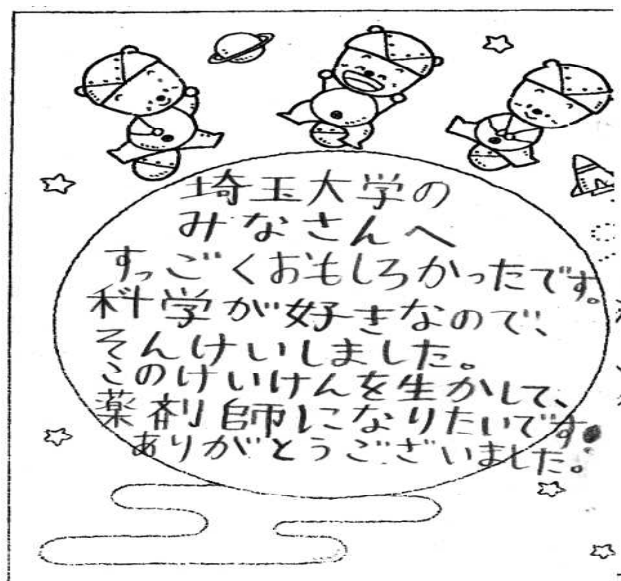 埼玉大学の
みなさんへ
すっごくおもしろかったです。
科学が好きなので、
そんけいしました。
このけいけんを生かして、
薬剤師になりたいです
ありがとうございました。